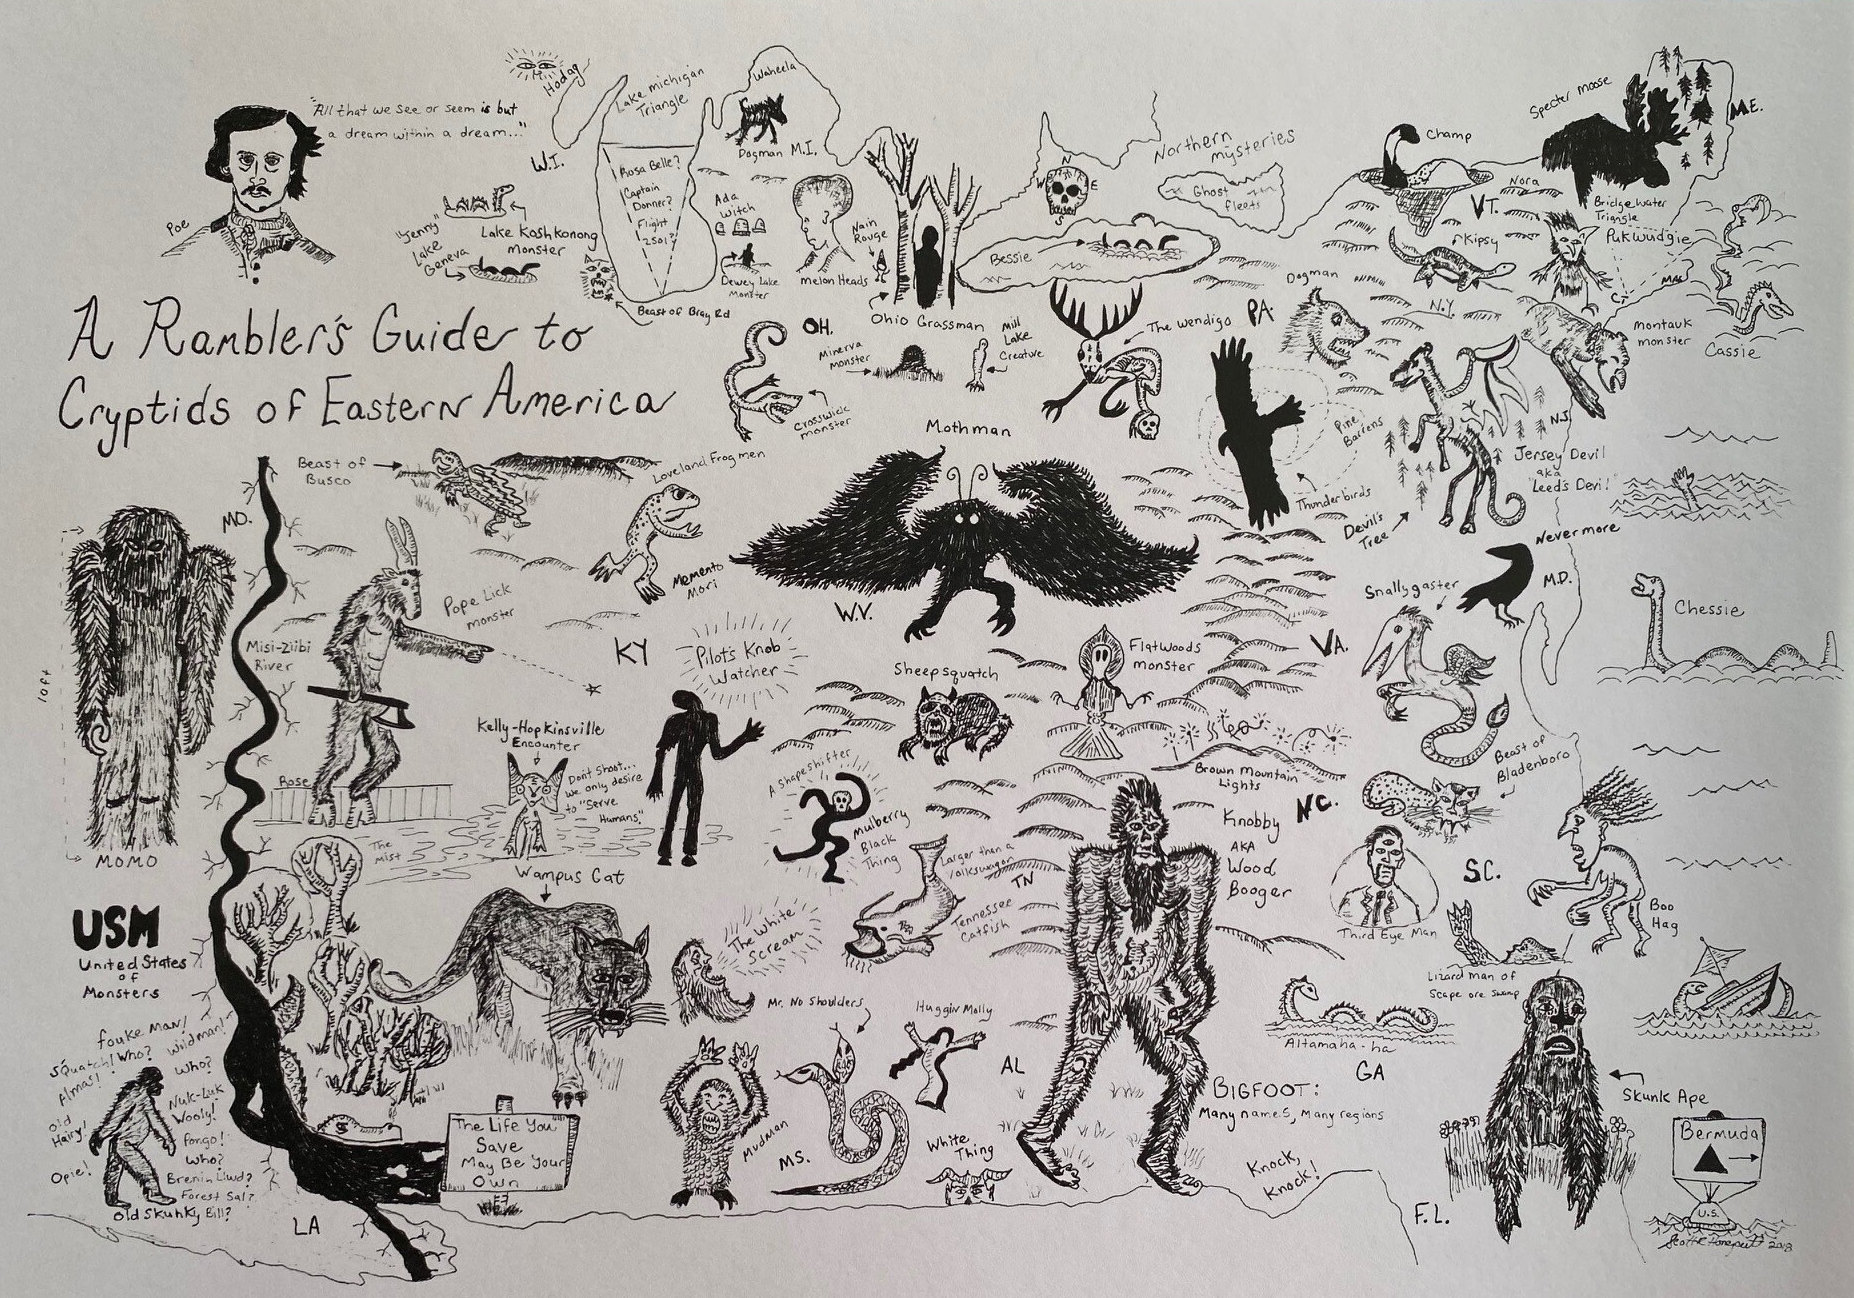 "All that we see or seem is but
a dream within a dream..."
Poe
Hodag
W.I.
Lake michigan
Triangle
Rosa Belle?
Captain
Donner?
Flight
2501?
Waheela
Dogman M.I.
Ada
Witch
Dewey Lake
Monster
melon Heads
Nain
Rouge
"Jenny"
Lake
Geneva
Lake Koshkonong
monster
Beast of Bray Rd
N
W
E
S
Northern
mysteries
Ghost
fleets
Bessie
Champ
Specter moose
M.E.
Nora
V.T.
Bridgewater
Triangle
Pukwudgie
Kipsy
MA.
Cassie
Montauk
monster
N.Y.
Dogman
PA.
A Rambler's Guide to
Cryptids of Eastern America
OH.
Ohio Grassman
Minerva
monster
Mill
Lake
Creature
The Wendigo
Crosswick
monster
Mothman
Pine
Barrens
Thunderbirds
N.J.
Jersey Devil
aka
"Leed's Devil"
Devil's
Tree
Nevermore
M.D.
Beast of
Busco
Loveland Frogmen
Memento
Mori
MO.
10ft
MOMO
Misi-Ziibi
River
Pope Lick
monster
KY
Pilot's Knob
Watcher
W.V.
Flatwoods
monster
Sheepsquatch
VA.
Snallygaster
Chessie
Rose
Kelly-Hopkinsville
Encounter
Don't Shoot...
we only desire
to "Serve
Humans"
The
mist
A Shapeshifter
Mulberry
Black
Thing
Brown Mountain
Lights
N.C.
Beast of
Bladenboro
Knobby
AKA
Wood
Booger
Larger than a
Volkswagon
TN
Tennessee
Catfish
Third Eye Man
S.C.
Boo
Hag
Lizard man of
Scape ore Swamp
USM
United States
of
Monsters
Wampus Cat
The White
Scream
Mr. No Shoulders
Huggin Molly
AL
Altamaha-ha
GA
BIGFOOT:
Many names, Many regions
Skunk Ape
Bermuda
U.S.
fouke Man!
Squatch!
Who?
wildman!
Almas!
Who?
Nuk-Luk
Wooly!
old
Hairy!
fongo!
Who?
Opie!
Brenin Llwyd?
Forest Sal?
Old Skunky Bill?
LA
The Life You
Save
May Be Your
Own
Mudman
MS.
White
Thing
Knock,
Knock!
F.L.
2018